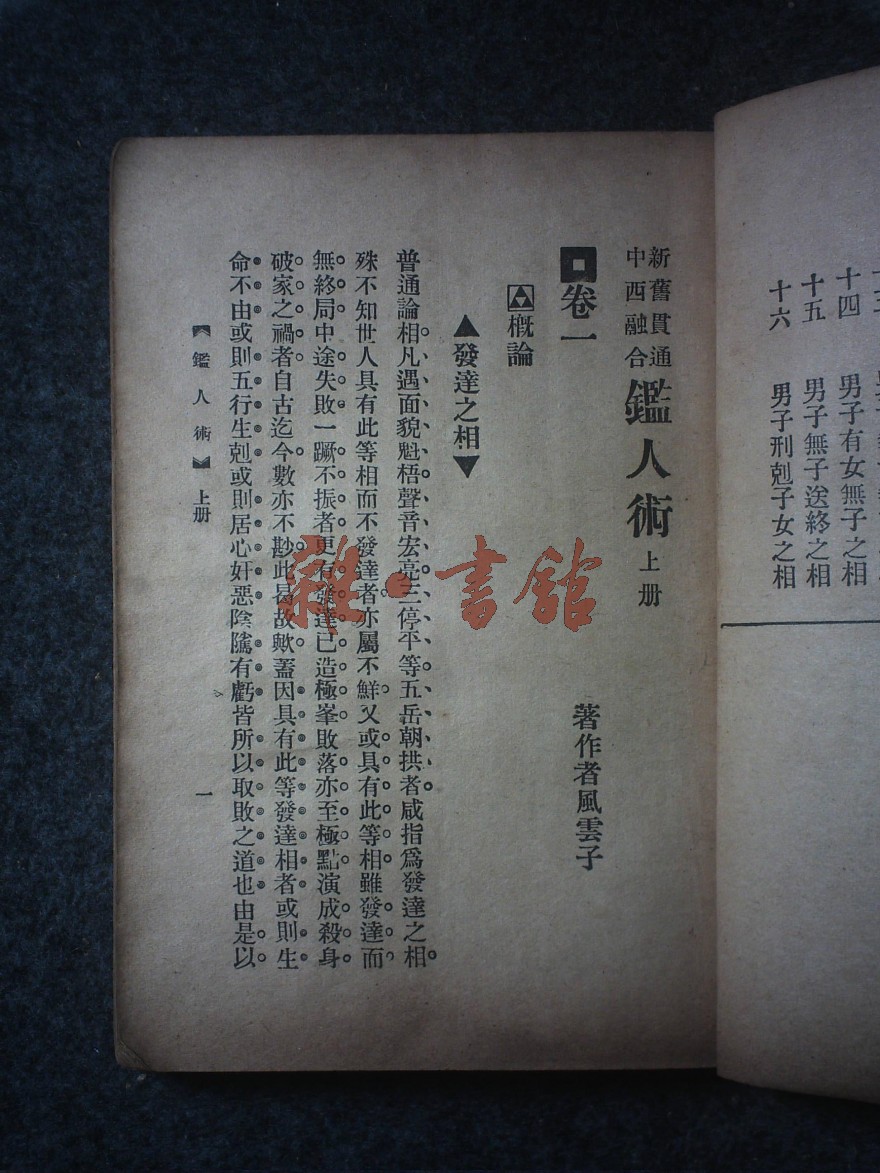 十四　男子有女無子之相
十五　男子無子送終之相
十六　男子刑剋子女之相
新舊貫通
中西融合
鑑人術 上册
著作者風雲子
卷一
概論
▲發達之相▼
普通論相凡遇面貌魁梧聲音宏亮三停平等五岳朝拱者咸指爲發達之相
殊不知世人具有此等相而不發達者亦屬不鮮又或具有此等相雖發達而
無終局中途失敗一蹶不振者更有發達已造極峯敗落亦至極點演成殺身
破家之禍者自古迄今數亦不尠此曷故歟蓋因具有此等發達相者或則生
命不由或則五行生剋或則居心奸惡陰隲有虧皆所以取敗之道也由是以
【鑑人術】上册
一
雜·書館